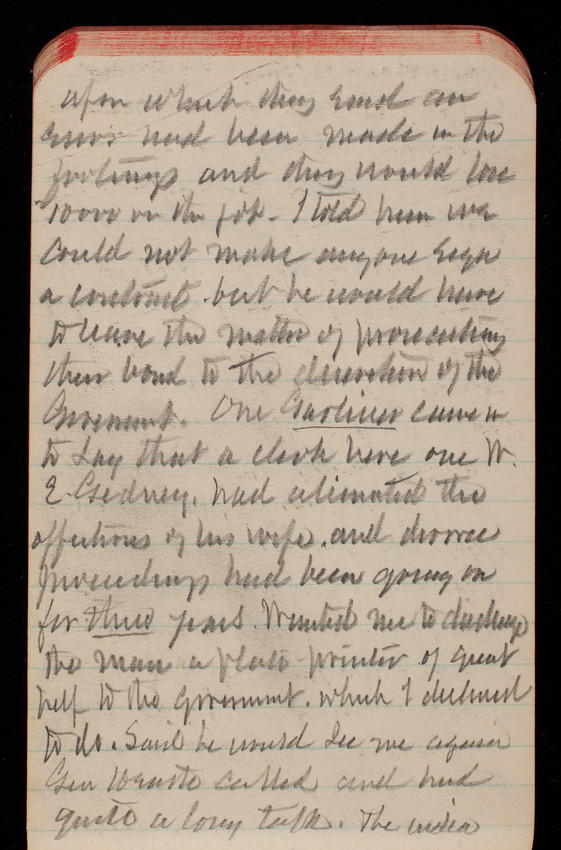 upon which they said an
error had been made in the
footings and they would lose
10000 on the job - I told him we
could not make anyone sign
a contract. but he would have
to leave the matter of prosecuting
their bond to the discretion of the
Government. One Gardiner came in
to say that a clerk here one W.
E. Gedney, had alienated the
affections of his wife. and divorce
proceedings had been going on
for three years. Wanted me to discharge
the man a plate printer of great
help to the government. which I declined
to do. Said he would see me again
Gen called and had
quite a long talk. The